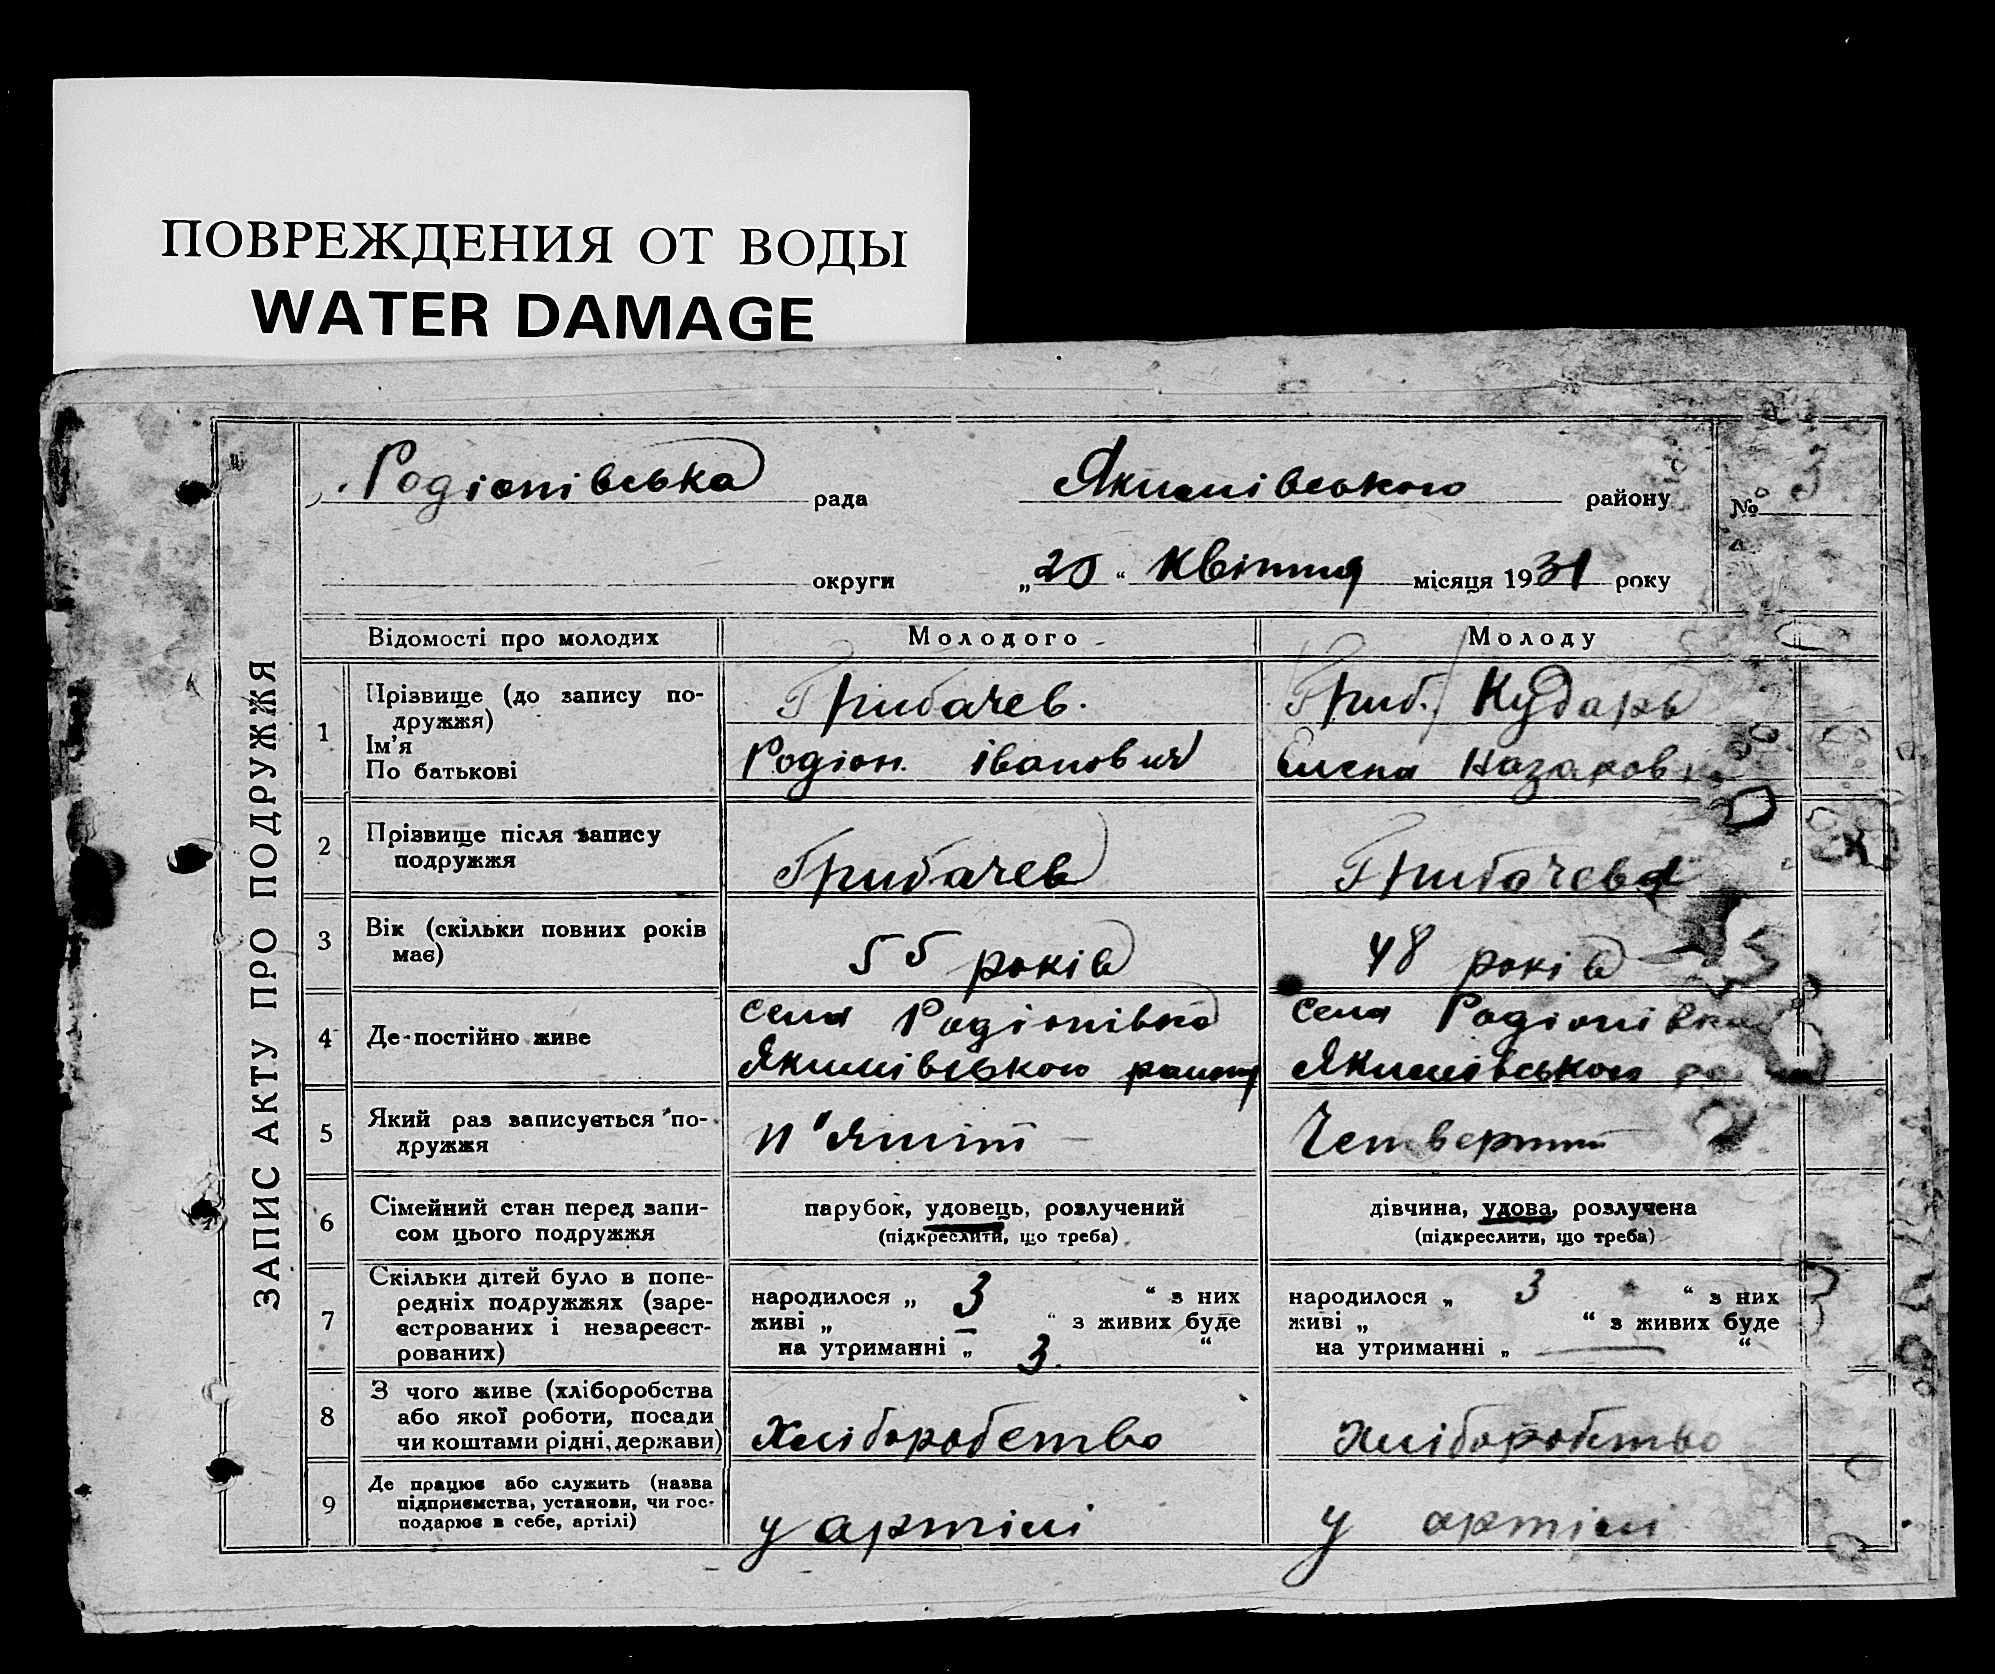 ПОВРЕЖДЕНИЯ ОТ ВОДЫ
WATER DAMAGE
ЗАПИС АКТУ ПРО ПОДРУЖЖЯ
Родіонівська рада Якимівського району № 3
округи „20“ Квітня місяця 1931 року
Відомості про молодих Молодого Молоду
1 Прізвище (до запису по-
дружжя)
Ім’я
По батькові
Грибачев.
Родіон. Іванович
Гриб./ Кударь
Елена Назаровн
2 Прізвище після запису
подружжя
Грибачев
Грибачева
3 Вік (скільки повних років
має)
55 років
48 років
4 Де постійно живе
села Родіонівка
Якимівського району
села Родіонівка
Якимівського
5 Який раз записується по-
дружжя
п'ятий
Четвертий
6 Сімейний стан перед запи-
сом цього подружжя
парубок, удовець, розлучений
(підкреслити, що треба)
дівчина, удова, розлучена
(підкреслити, що треба)
7 Скільки дітей було в попе-
редніх подружжях (заре-
єстрованих і незареєст-
рованих)
народилося „ 3 “ з них
живі „ — “ з живих буде
на утриманні „ 3. “
народилося „ 3 “ з них
живі „ “ з живих буде
на утриманні „ — “
8 З чого живе (хліборобства
або якої роботи, посади
чи коштами рідні, держави)
Хліборобство
Хліборобство
9 Де працює або служить (назва
підприємства, установи, чи гос-
подарює в себе, артілі)
у артілі
у артілі